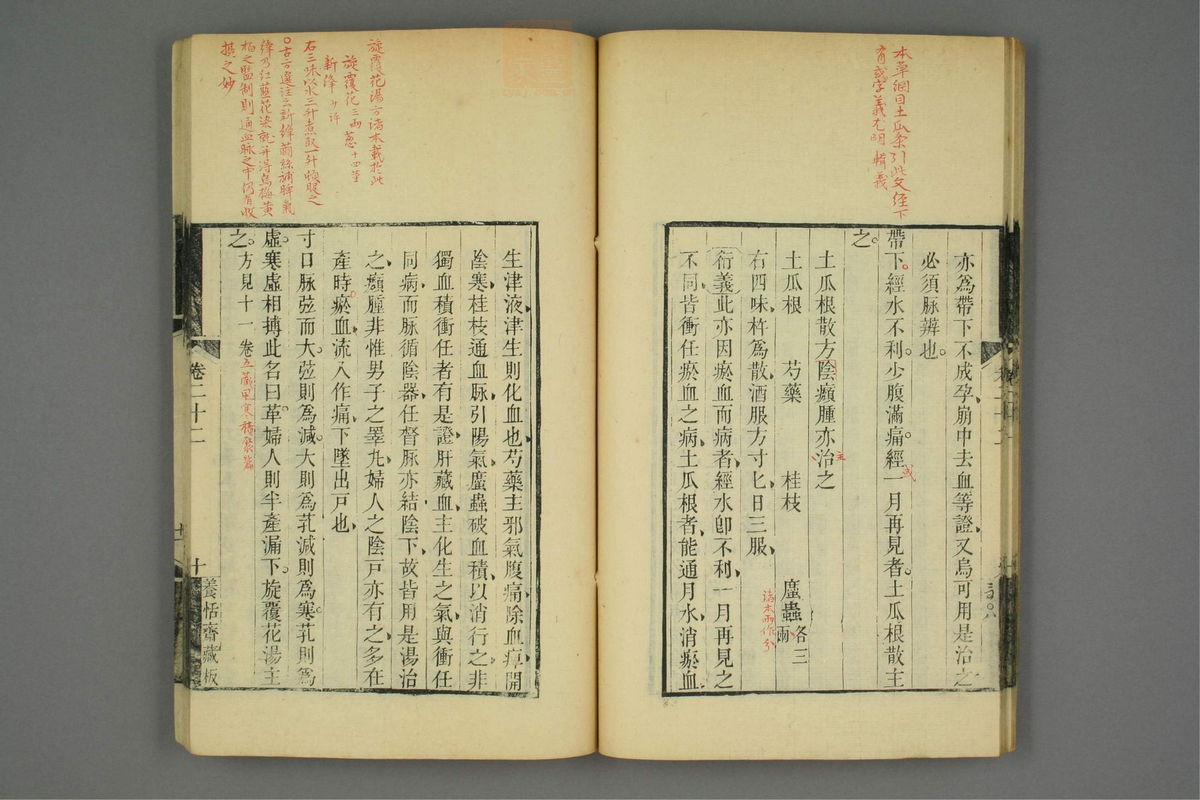 本草綱目土瓜条引此文經下
有或字義尤明 輯義
亦爲帶下不成孕崩中去血等證又烏可用是治之
必須脉辨也
帶下經水不利少腹滿痛經一月再見者土瓜根散主
或
之
土瓜根散方陰㿗腫亦治之
主
土瓜根 芍藥 桂枝 䗪蟲各三兩
諸本兩作分
右四味杵爲散酒服方寸匕日三服
衍義此亦因瘀血而病者經水卽不利一月再見之
不同皆衝任瘀血之病土瓜根者能通月水消瘀血
旋覆花湯方諸本載於此
旋覆花三兩 葱十四莖
新絳少許
右三味以水三升煮取一升頓服之
○古方選注云新絳蘭絲補脾氣
絳乃紅藍花染就并得烏梅黃
柏之監制則通血脉之中仍有收
攝之妙
生津液津生則化血也芍藥主邪氣腹痛除血痺開
陰寒桂枝通血脉引陽氣䗪蟲破血積以消行之非
獨血積衝任者有是證肝藏血主化生之氣與衝任
同病而脉循陰器任督脉亦結陰下故皆用是湯治
之㿗腫非惟男子之睪丸婦人之陰戸亦有之多在
產時瘀血流入作痛下墜出戸也
寸口脉弦而大弦則爲減大則爲芤減則爲寒芤則爲
虛寒虛相搏此名曰革婦人則半產漏下旋覆花湯主
之方見十一卷五藏風寒積聚篇
卷二十二
十
養恬齋藏板